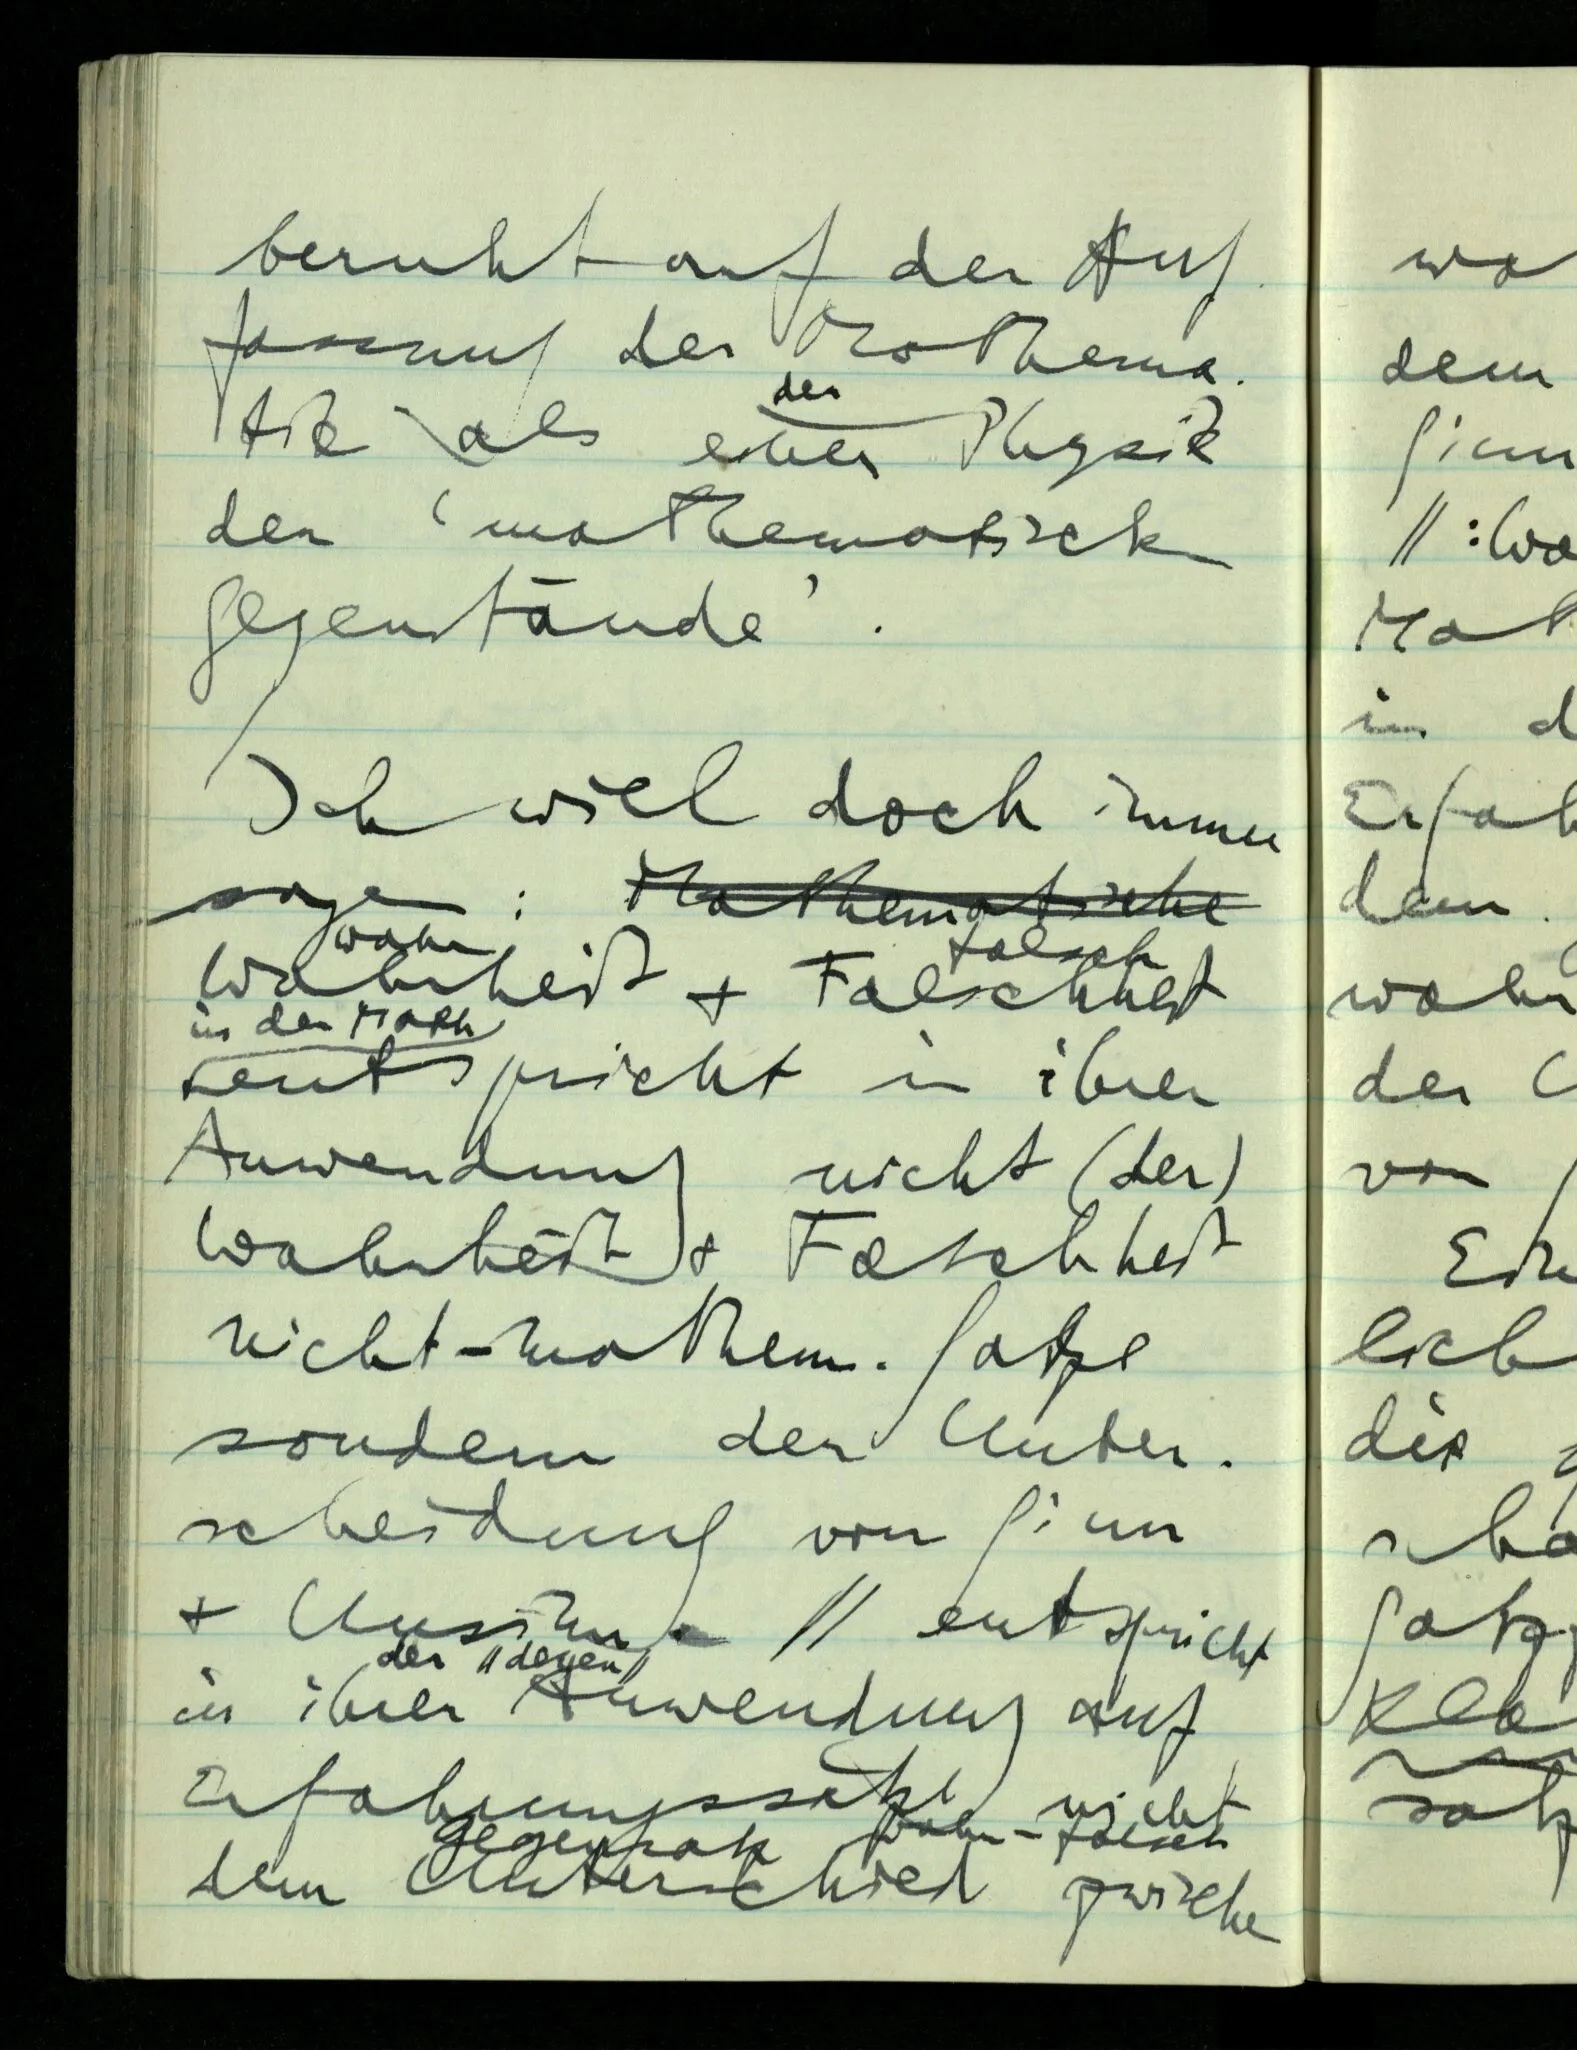 beruht auf der Auf-
fassung der Mathema-
der
tik als einer Physik
der ‘mathematisch
Gegenstände’.
Ich will doch immer
sagen: Mathematische
wahr falsch
Wahrheit + Falschheit
in der Math
entspricht in ihrer
Anwendung nicht (der)
Wahrheit + Falschheit
nicht-mathem. Sätze
sondern der Unter-
scheidung von Sinn
+ Unsinn. // entspricht
der // deren
in ihrer Anwendung auf
Erfahrungssätze nicht
Gegensatz wahr-falsch
dem Unterschied zwische
wa
dem
Sinn
// : Wa
Mat
in d
Erfah
dem
wahr
der U
von
Ein
lich
die
Satz
Kla
satz